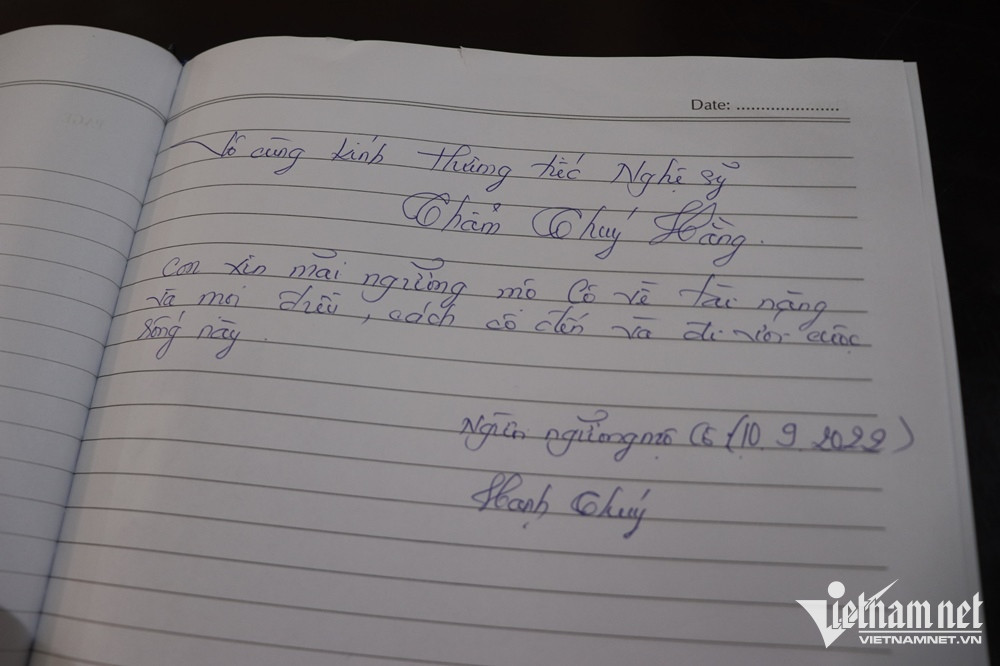 Date: ......................
Vô cùng kính thương tiếc Nghệ sỹ
Thẩm Thuý Hằng.
Con xin mãi ngưỡng mộ Cô về tài năng
và mọi điều, cách cô đến và đi với cuộc
sống này.
Người ngưỡng mộ Cô (10.9.2022)
Hạnh Thuý
vietnamnet
VIETNAMNET.VN